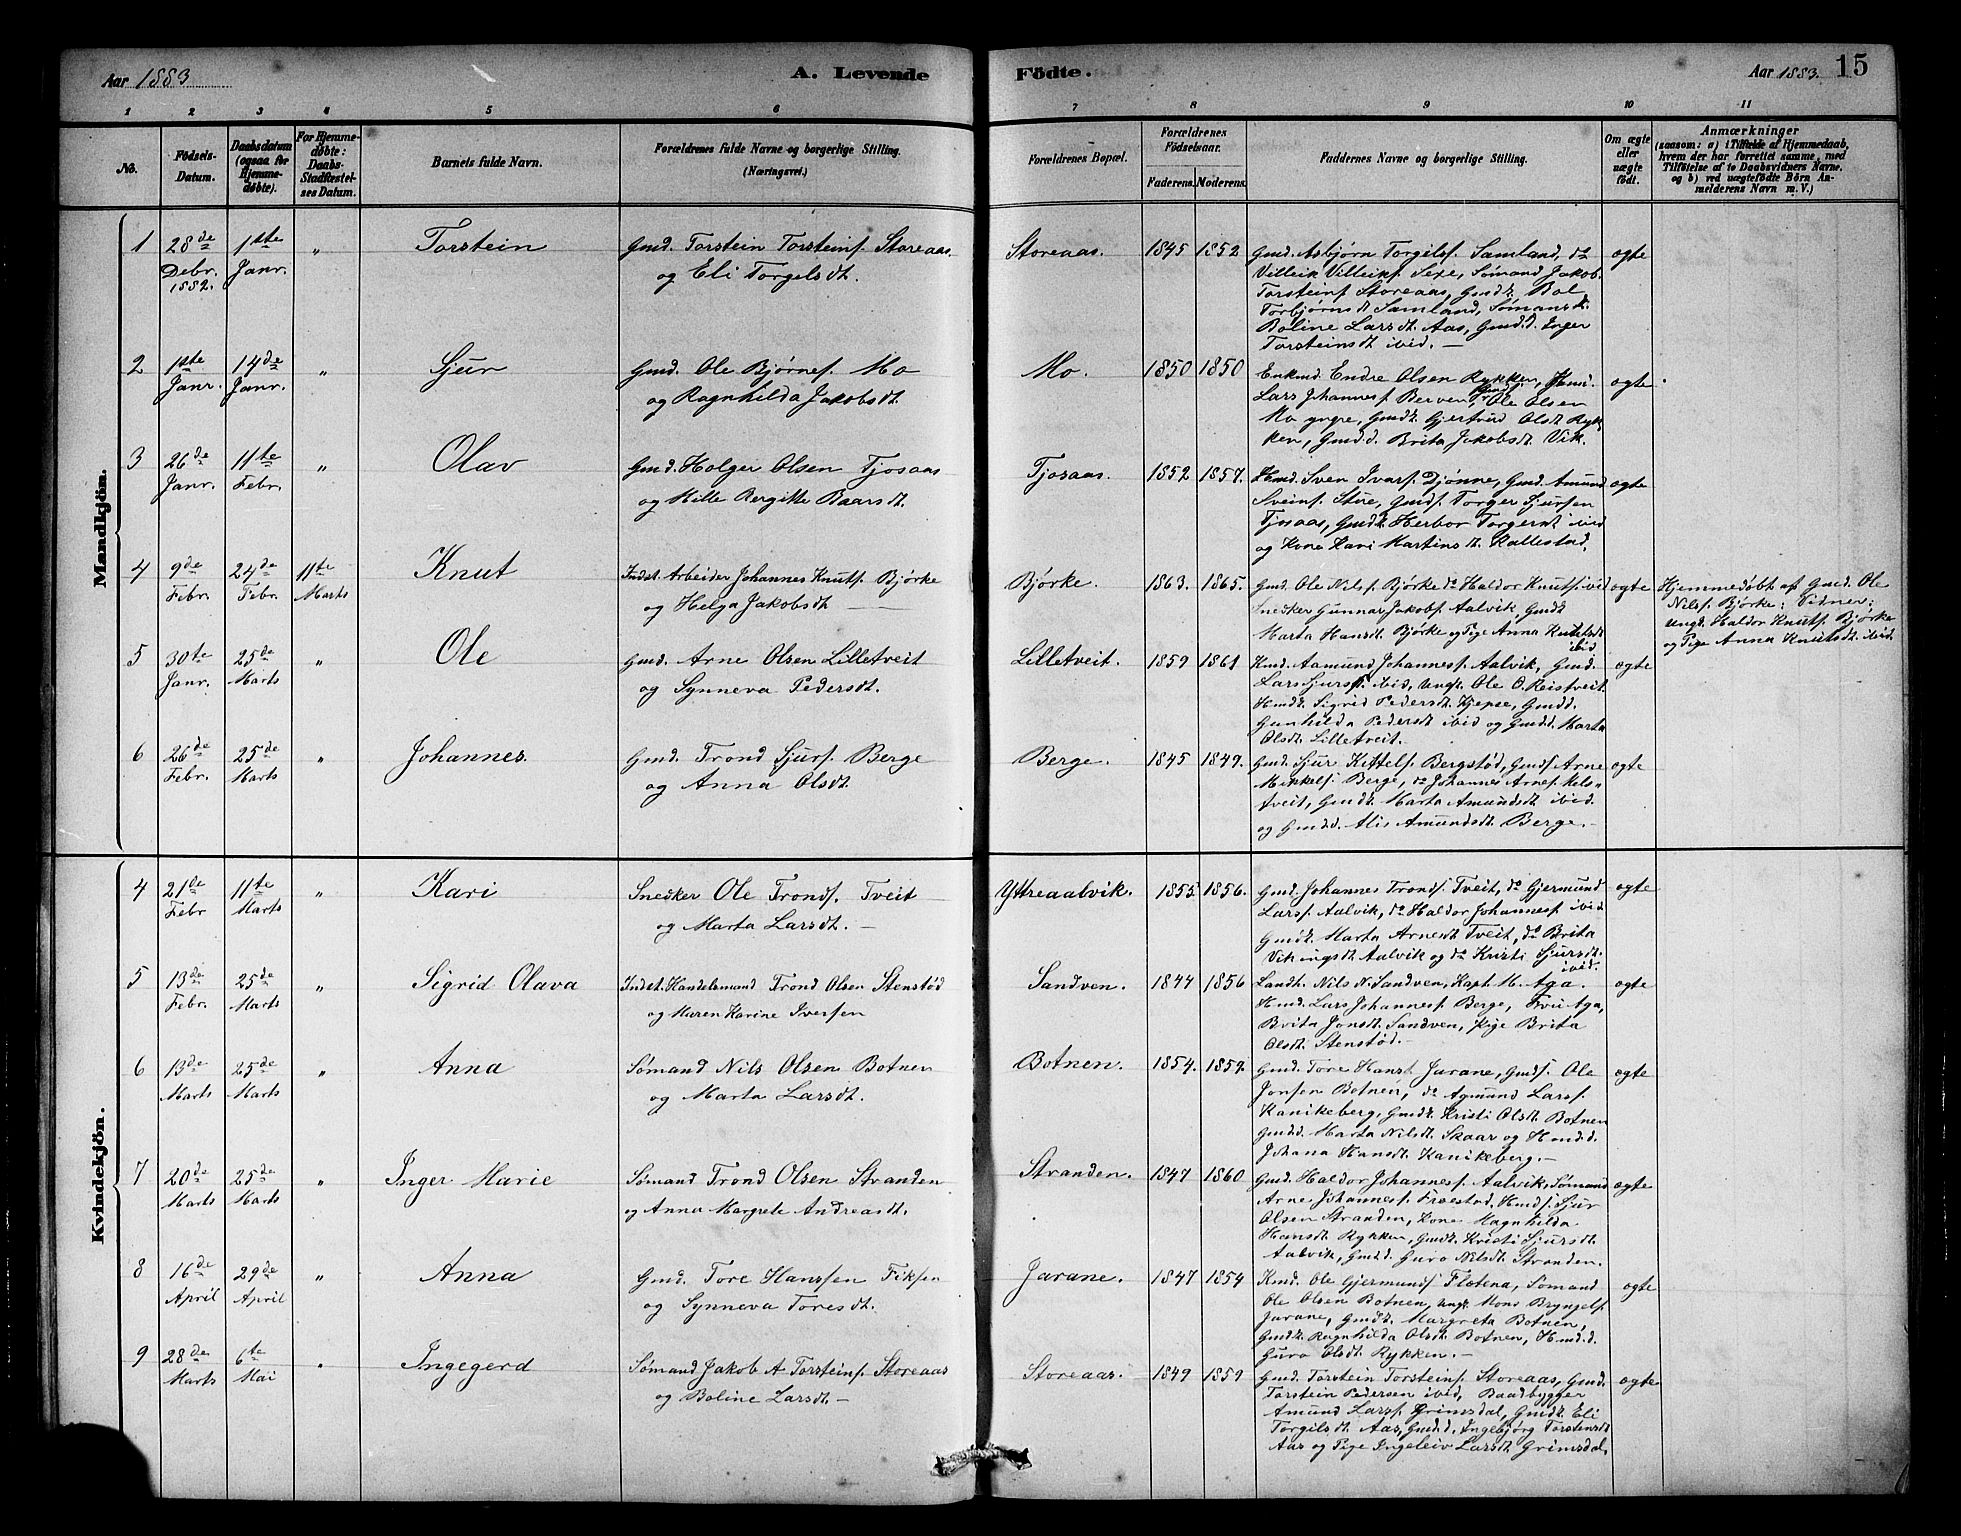 Aar 1883
A. Levende
Födte.
Aar 1883.
15
1 2 3 4 5 6 7 8 9 10 11
No.
Födsels-Datum.
Daabsdatum (ogsaa for Hjemme-døbte).
For Hjemme-døbte: Daabs-Stadfæstel-ses Datum.
Barnets fulde Navn.
Forældrenes fulde Navne og borgerlige Stilling. (Næringsvei.)
Forældrenes Bopæl.
Forældrenes Födselsaar.
Faderens. Moderens.
Faddernes Navne og borgerlige Stilling.
Om ægte eller uægte födt.
Anmærkninger
(saasom: a) i Tilfælde af Hjemmedaab,
hvem der har forrettet samme, med
Tilföielse af to Daabsvidners Navne,
og b) ved uægtefödte Börn An-
melderens Navn m. V.)
Mandkjön.
1 28de Debr. 1882. 1ste Janr. " Torstein
Gmd. Torstein Torsteins. Storeaas
og Eli Torgelsdt.
Storeaas. 1845 1852
Gmd. Asbjørn Torgils. Samland, do
Villeik Villeiks. Sexe, Sømand Jakob
Torsteins. Storeaas, Gmdk. Bol
Torbjørnsdt Samland, Sømansk.
Boline Larsdt. Aas, Gmd.d. Inger
Torsteinsdt ibid. —
ægte
2 1ste Janr. 14de Janr. " Sjur
Gmd. Ole Bjørnes. Mo
og Ragnhilda Jakobsdt.
Mo. 1850 1850
Enkmd. Endre Olsen Rykken, Hmd.
Lars Johannes. Berven, Gmds. Ole Olsen
Mo yngre, Gmdk. Gjertrud Olsdt Ryk-
ken, Gmd.d. Brita Jakobsdt Vik.
ægte
3 26de Janr. 11te Febr. " Olav
Gmd. Holger Olsen Tjosaas
og Mille Bergitte Baarsdt.
Tjosaas. 1852 1857.
Hmd. Sven Ivars. Djønne, Gmd. Amund
Sveins. Stue, Gmds. Torger Sjursen
Tjosaas, Gmdk. Herbor Torgersdt ibid
og Kone Kari Martinsdt. Kallestad.
ægte
4 9de Febr. 24de Febr. 11te Marts Knut
Indst. Arbeider Johannes Knuts. Bjørke
og Helga Jakobsdt —
Bjørke. 1863. 1865.
Gmd. Ole Nils. Bjørke do Haldor Knuts. ibid
Snedker Gunnar Jakobs. Aalvik Gmdk
Marta Hansdt. Bjørke og Pige Anna Knutsdt
ibid
ægte
Hjemmedøbt af Gmd. Ole
Nils. Bjørke; Vidner:
Ungd. Haldor Knuts. Bjørke
og Pige Anna Knutsdt. ibid
5 30te Janr. 25de Marts " Ole
Gmd. Arne Olsen Lilletveit
og Synneva Pedersdt.
Lilletveit. 1859 1861
Hmd. Aamund Johannes. Aalvik, Gmd.
Lars Sjurs. ibid, Ungk. Ole O. Reistveit.
Hmdk. Sigrid Pedersdt Kjepse, Gmdd.
Gunhilda Pedersdt ibid og Gmdd. Marta
Olsdt. Lilletveit.
ægte
6 26de Febr. 25de Marts " Johannes.
Gmd. Trond Sjurs. Berge
og Anna Olsdt.
Berge. 1845 1849.
Gmd. Sjur Kittels. Bergstød, Gmds. Arne
Mikkels. Berge, do Johannes Arnes. Mels-
tveit, Gmdk. Marta Amundsdt ibid.
og Gmd.d. Alis Amundsdt. Berge. —
ægte
Kvindekjön.
4 21de Febr 11te Marts " Kari
Snedker Ole Tronds. Tveit
og Marta Larsdt. —
Yttreaalvik. 1855 1856.
Gmd. Johannes Tronds. Tveit, do Gjermund
Lars. Aalvik, do Haldor Johannes. ibid
Gmdk. Marta Arnesdt Tveit, do Brita
Vikingsdt Aalvik og do Kristi Sjursdt.
ibid.
ægte
5 13de Febr. 25de Marts " Sigrid Olava
Indst. Handelsmand Trond Olsen Stenstød
og Maren Karine Iversen
Sandven. 1844 1856
Landh. Nils N. Sandven, Kapt. M. Aga.
Hmd. Lars Johannes. Berge, Fru Aga,
Brita Jonsdt. Sandven, Pige Brita
Olsdt. Stenstød. —
ægte
6 13de Marts 25de Marts " Anna
Sømand Nils Olsen Botnen
og Marta Larsdt.
Botnen. 1854. 1859.
Gmd. Tore Hans. Jarane, Gmds. Ole
Jonsen Botnen, do Agmund Lars.
Kanikeberg, Gmdk. Kristi Olsdt. Botnen
Gmd.d. Marta Nilsdt. Skaar og Hmd.d.
Johana Hansdt. Kanikeberg. —
ægte
7 20de Marts 25de Marts " Inger Marie
Sømand Trond Olsen Stranden
og Anna Margrete Andreasdt.
Stranden. 1847 1860
Gmd. Haldor Johannes. Aalvik, Sømand
Arne Johannes. Fraestad, Hmds. Sjur
Olsen Stranden, Kone Magnhilda
Hansdt Rykken, Gmdk. Kristi Sjursdt
Aalvik, Gmdd. Guro Nilsdt Stranden.
ægte
8 16de April 29de April " Anna
Gmd. Tore Hanssen Fiksen
og Synneva Toresdt.
Jarane. 1847 1854
Kmd. Ole Gjermunds. Flotena, Sømand
Ole Olsen Botnen, Ungk. Mons Bryngels.
Jarane, Gmdk. Margreta Botnen,
Gmdk. Ragnhilda Olsdt Botnen, Hmd.d.
Guro Olsdt Rykken. —
ægte
9 28de Marts 6te Mai " Ingegerd
Sømand Jakob A Torsteins. Storeaas
og Boline Larsdt. —
Storeaas. 1849 1859
Gmd. Torstein Torsteins. Storeaas, Gmd.
Torstein Pedersen ibid, Baadbygger
Amund Lars. Grimsdal, Gmdk. Eli
Torgilsdt Aas, Gmd.d. Ingebjørg Torsteinsdt
Aas og Pige Ingeleiv Larsdt Grimsdal.
ægte